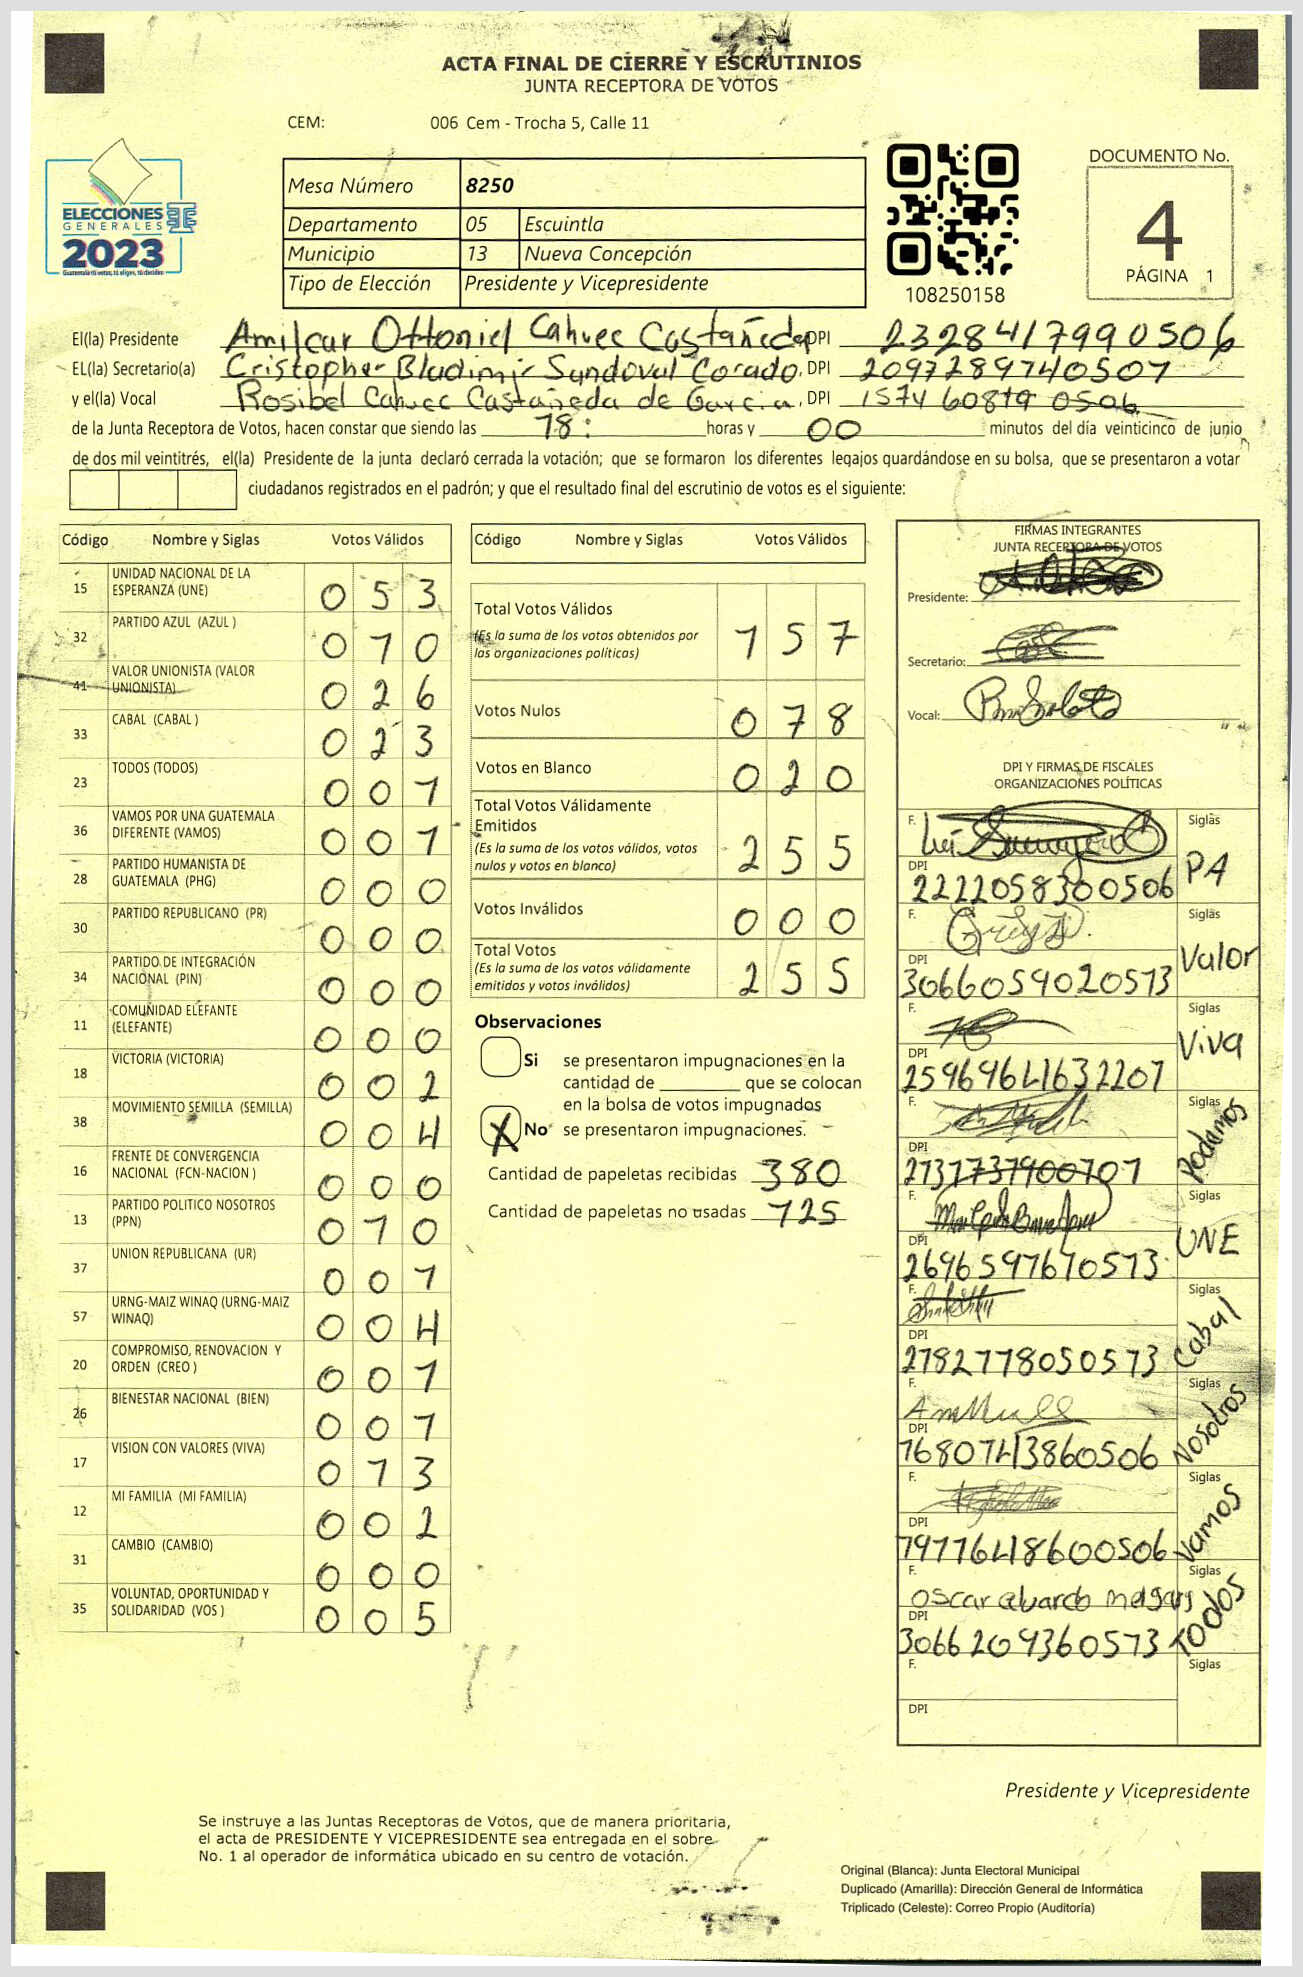 ACTA FINAL DE CIERRE Y ESCRUTINIOS
JUNTA RECEPTORA DE VOTOS
CEM: 006 Cem - Trocha 5, Calle 11
ELECCIONES
GENERALES
2023
Mesa Número 8250
Departamento 05 Escuintla
Municipio 13 Nueva Concepción
Tipo de Elección Presidente y Vicepresidente
108250158
DOCUMENTO No.
4
PÁGINA 1
El(la) Presidente Amilcar Ottoniel Cahuec Castañeda DPI 2328417990506
EL(la) Secretario(a) Cristopher Bladimir Sandoval Corado, DPI 2097289740507
y el(la) Vocal Rosibel Cahuec Castañeda de Garcia, DPI 1574 60879 0506
de la Junta Receptora de Votos, hacen constar que siendo las 18: horas y 00 minutos del día veinticinco de junio
de dos mil veintitrés, el(la) Presidente de la junta declaró cerrada la votación; que se formaron los diferentes legajos quardándose en su bolsa, que se presentaron a votar
ciudadanos registrados en el padrón; y que el resultado final del escrutinio de votos es el siguiente:
Código Nombre y Siglas Votos Válidos
15 UNIDAD NACIONAL DE LA ESPERANZA (UNE) 053
32 PARTIDO AZUL (AZUL ) 010
41 VALOR UNIONISTA (VALOR UNIONISTA) 026
33 CABAL (CABAL ) 023
23 TODOS (TODOS) 001
36 VAMOS POR UNA GUATEMALA DIFERENTE (VAMOS) 001
28 PARTIDO HUMANISTA DE GUATEMALA (PHG) 000
30 PARTIDO REPUBLICANO (PR) 000
34 PARTIDO DE INTEGRACIÓN NACIONAL (PIN) 000
11 COMUNIDAD ELEFANTE (ELEFANTE) 000
18 VICTORIA (VICTORIA) 002
38 MOVIMIENTO SEMILLA (SEMILLA) 004
16 FRENTE DE CONVERGENCIA NACIONAL (FCN-NACION ) 000
13 PARTIDO POLITICO NOSOTROS (PPN) 010
37 UNION REPUBLICANA (UR) 001
57 URNG-MAIZ WINAQ (URNG-MAIZ WINAQ) 004
20 COMPROMISO, RENOVACION Y ORDEN (CREO ) 001
26 BIENESTAR NACIONAL (BIEN) 001
17 VISION CON VALORES (VIVA) 013
12 MI FAMILIA (MI FAMILIA) 002
31 CAMBIO (CAMBIO) 000
35 VOLUNTAD, OPORTUNIDAD Y SOLIDARIDAD (VOS ) 005
Código Nombre y Siglas Votos Válidos
Total Votos Válidos 157
(Es la suma de los votos obtenidos por
las organizaciones políticas)
Votos Nulos 078
Votos en Blanco 020
Total Votos Válidamente
Emitidos 255
(Es la suma de los votos válidos, votos
nulos y votos en blanco)
Votos Inválidos 000
Total Votos 255
(Es la suma de los votos válidamente
emitidos y votos inválidos)
Observaciones
Si se presentaron impugnaciones en la
cantidad de ________ que se colocan
en la bolsa de votos impugnados
X No se presentaron impugnaciones.
Cantidad de papeletas recibidas 380
Cantidad de papeletas no usadas 125
FIRMAS INTEGRANTES
JUNTA RECEPTORA DE VOTOS
Presidente:
Secretario:
Vocal:
DPI Y FIRMAS DE FISCALES
ORGANIZACIONES POLÍTICAS
F. Siglas
DPI 2222058300506 PA
F. Siglas
DPI 3066059020513 Valor
F. Siglas
DPI 25969641632201 Viva
F. Siglas
DPI 2731737900701 Podamos
F. Siglas
DPI 2696597670513 UNE
F. Siglas
DPI 2782778050513 Cabal
F. Siglas
DPI 1680743860506 Nosotros
F. Siglas
DPI 1977648600506 Vamos
F. oscar Siglas
DPI 3066209360513 TODOS
F. Siglas
DPI
Presidente y Vicepresidente
Se instruye a las Juntas Receptoras de Votos, que de manera prioritaria,
el acta de PRESIDENTE Y VICEPRESIDENTE sea entregada en el sobre
No. 1 al operador de informática ubicado en su centro de votación.
Original (Blanca): Junta Electoral Municipal
Duplicado (Amarilla): Dirección General de Informática
Triplicado (Celeste): Correo Propio (Auditoría)